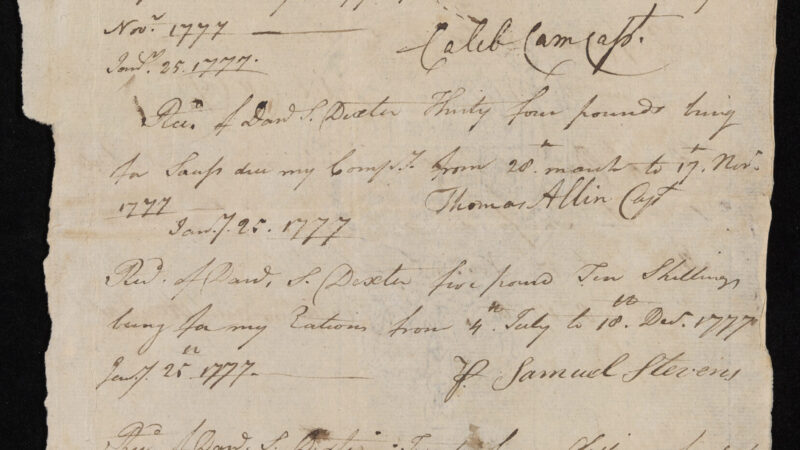 Novr 1777
Caleb Carr Capt.
Janry. 25. 1777.
Recd. of Davd S. Dexter Thirty four pounds being
for Sauss due my Compy. from 28th march to 17th. Novr.
1777
Thomas Allin Capt
Jany. 25. 1777
Recd. of Davd. S. Dexter five pound Ten Shillings
being for my Rations from 4th July to 18th. Decr. 1777
Jany. 25th 1777.
Samuel Stevens
Recd of Davd. S. Dexter